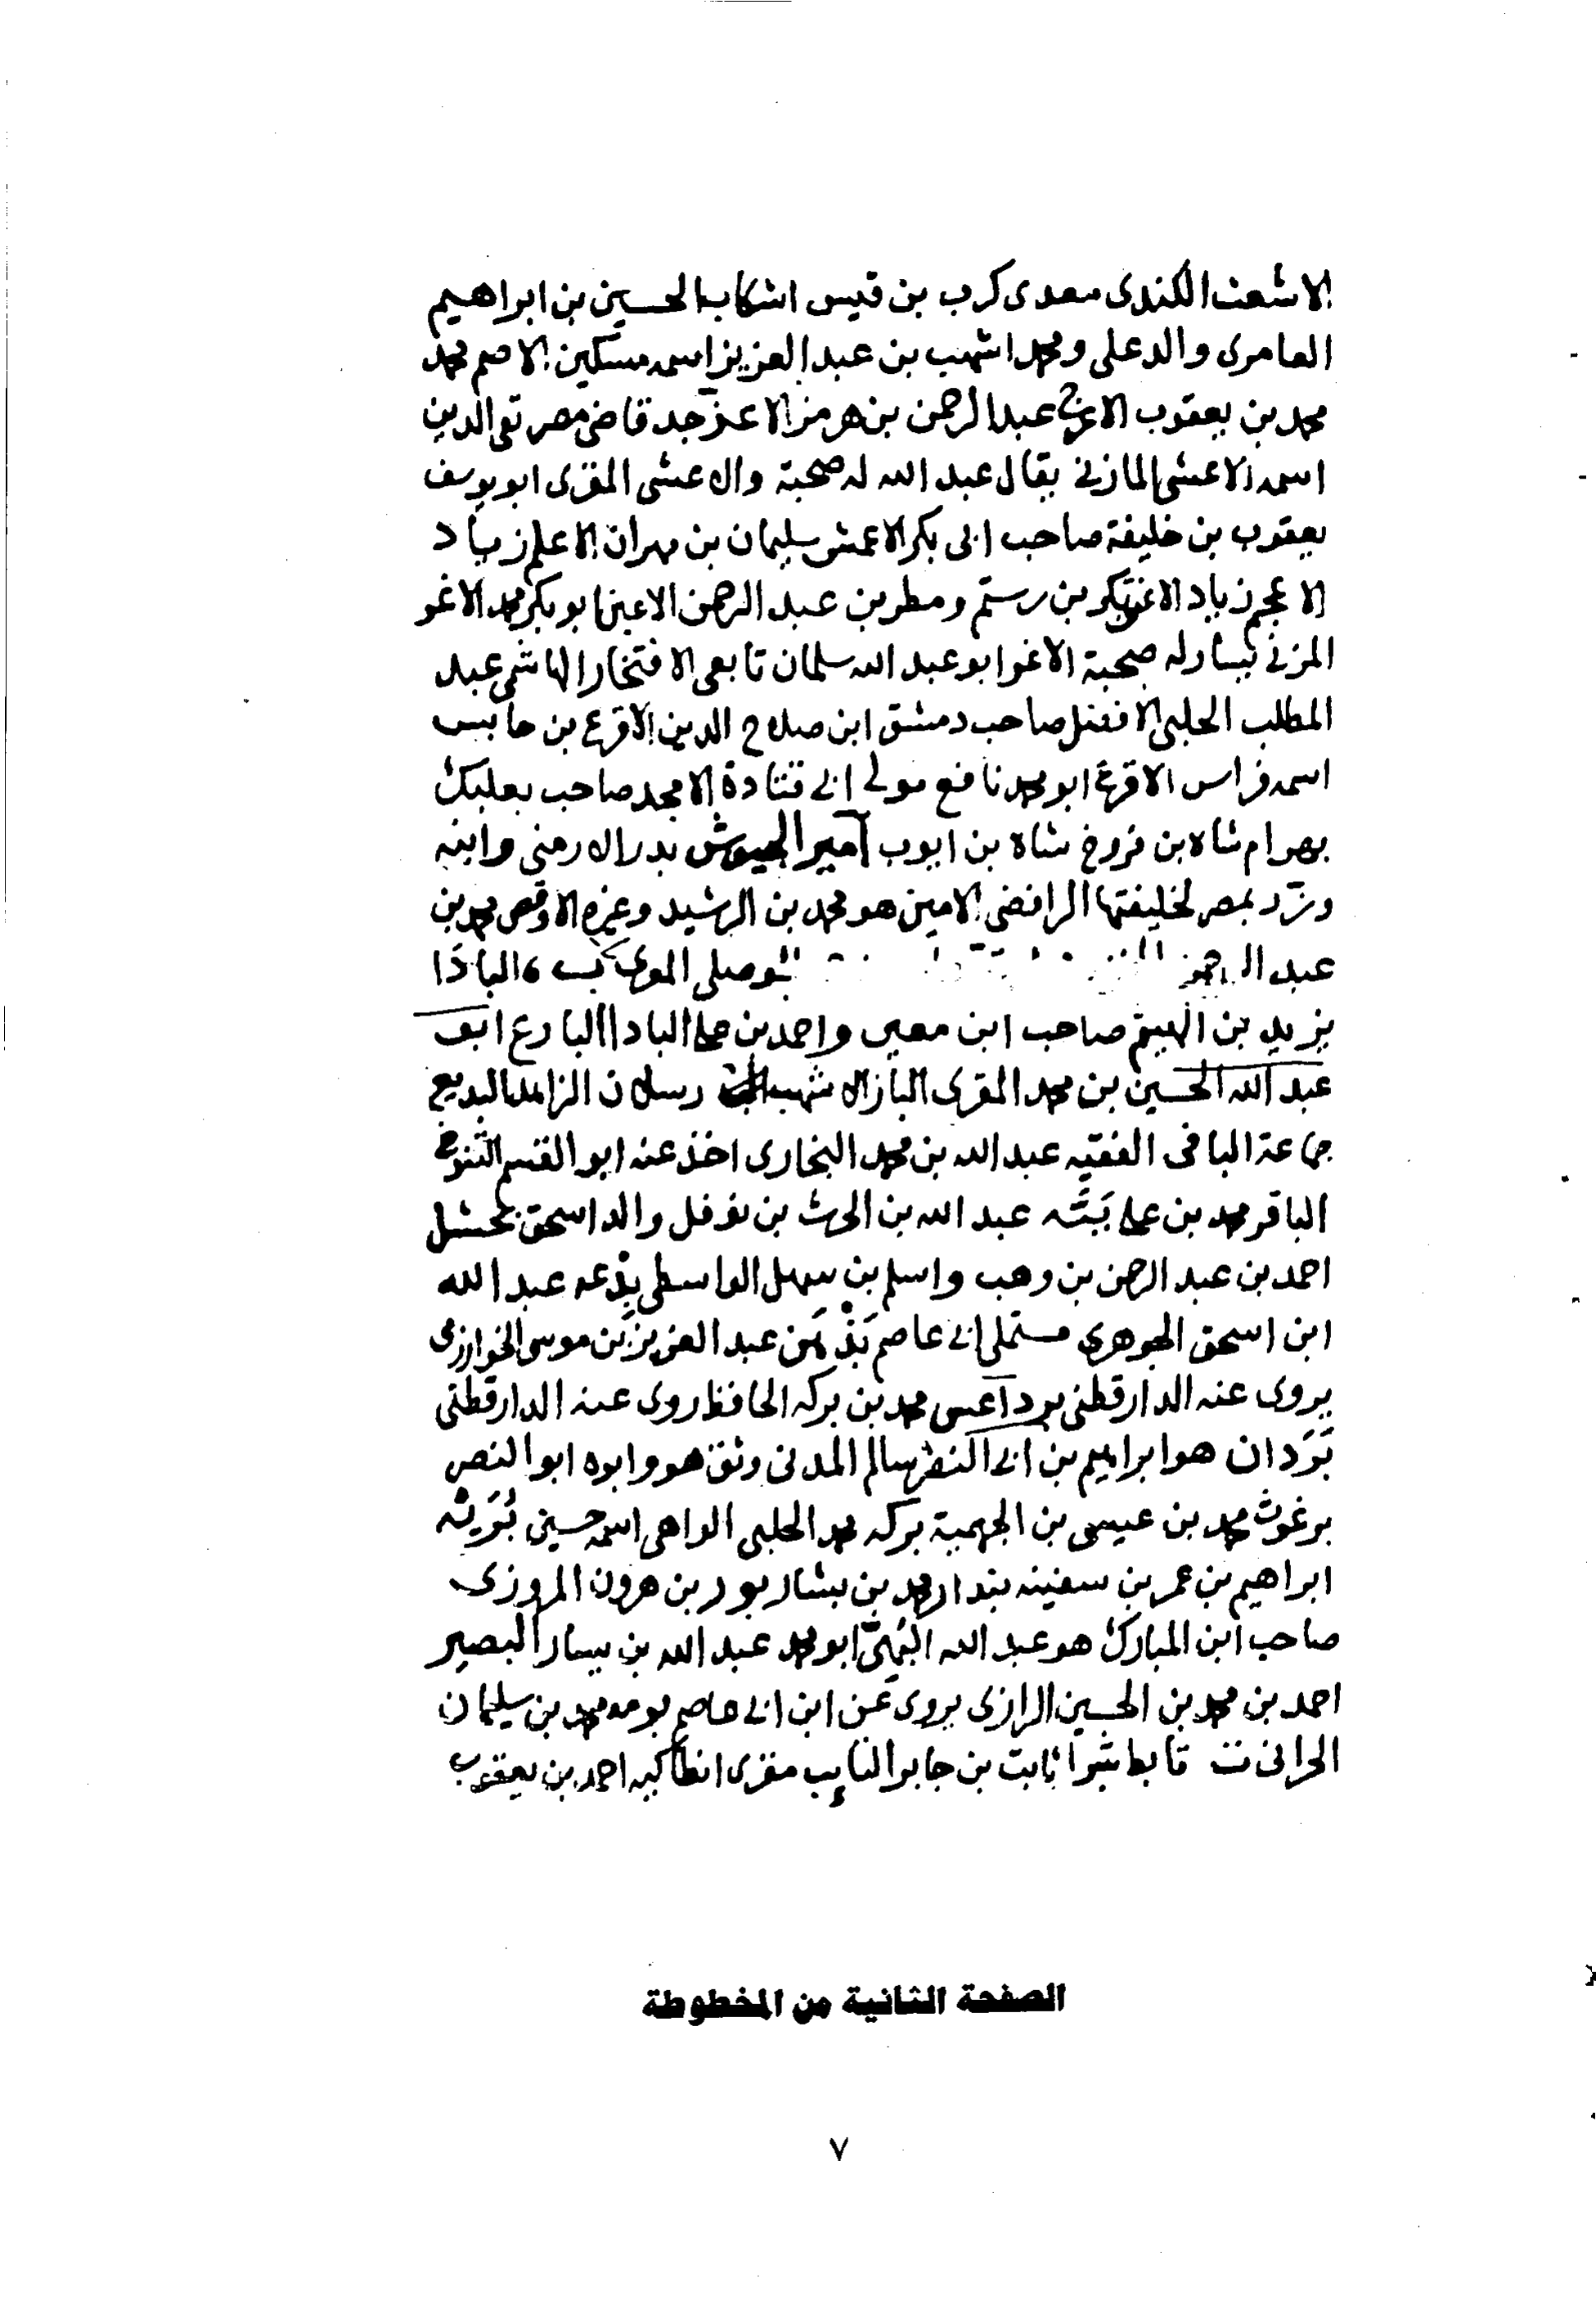 الاشعث الكندى معدى كرب بن قيس اشكاب الحسين بن ابراهيم
العامرى والد على ومحمد اشهب بن عبد العزيز اسمه مسكين الاصم محمد
محمد بن يعقوب الاعرج عبد الرحمن بن هرمز الاعز جد قاضى مصر تقى الدين
اسمه الاعشى المازنى يقال عبد الله له صحبة والاعشى المقرى ابو يوسف
يعقوب بن خليفة صاحب ابى بكر الاعمش سليمان بن مهران الاعلم زياد
الاعجم زياد الاعنق بكر بن رستم ومطر بن عبد الرحمن الاعين ابو بكر محمد الاغر
المزنى يسار له صحبة الاغر ابو عبد الله سلمان تابعى الافتخار الهاشمى عبد
المطلب الحلبى الافضل صاحب دمشق ابن صلاح الدين الاقرع بن حابس
اسمه فراس الاقرع ابو محمد نافع مولى ابى قتادة الامجد صاحب بعلبك
بهرام شاه بن فروخ شاه بن ايوب امير الجيوش بدر الارمنى وابنه
وزرد بمصر لخليفتها الرافضى الامين هو محمد بن الرشيد وغيره الاوقص محمد بن
عبد الرحمن الموصلى البادا
يزيد بن الهيثم صاحب ابن معين واحمد بن على البادا البارع ابو
عبد الله الحسين بن محمد المقرى الباز الاشهب رسلان الزاهد البديع
جماعة البافى الفقيه عبد الله بن محمد البخارى اخذ عنه ابو القسم التنوخى
الباقر محمد بن على ببه عبد الله بن الحرث بن نوفل والد اسحق بحشل
احمد بن عبد الرحمن بن وهب واسلم بن سهل الواسطى بدعه عبد الله
ابن اسحق الجوهرى مستملى ابى عاصم بذهن عبد العزيز بن موسى الخوارزمى
يروى عنه الدارقطنى برداعس محمد بن بركه الحافظ روى عنه الدارقطنى
بردان هو ابراهيم بن ابى النضر سالم المدنى وثق هو وابوه ابو النضر
برغوث محمد بن عيسى بن الجهمية بركه محمد الحلبى الواهى اسمه حسين بريه
ابراهيم بن عمر بن سفينه بندار محمد بن بشار بور بن هرون المروزى
صاحب ابن المبارك هو عبد الله البهى ابو محمد عبد الله بن يسار البصير
احمد بن محمد بن الحسين الرازى يروى عن ابن ابى حاتم بومه محمد بن سليمان
الحرانى ت تابط شرا ثابت بن جابر التايب مقرى انطاكيه احمد بن يعقوب
الصفحة الثانية من المخطوطة
٧